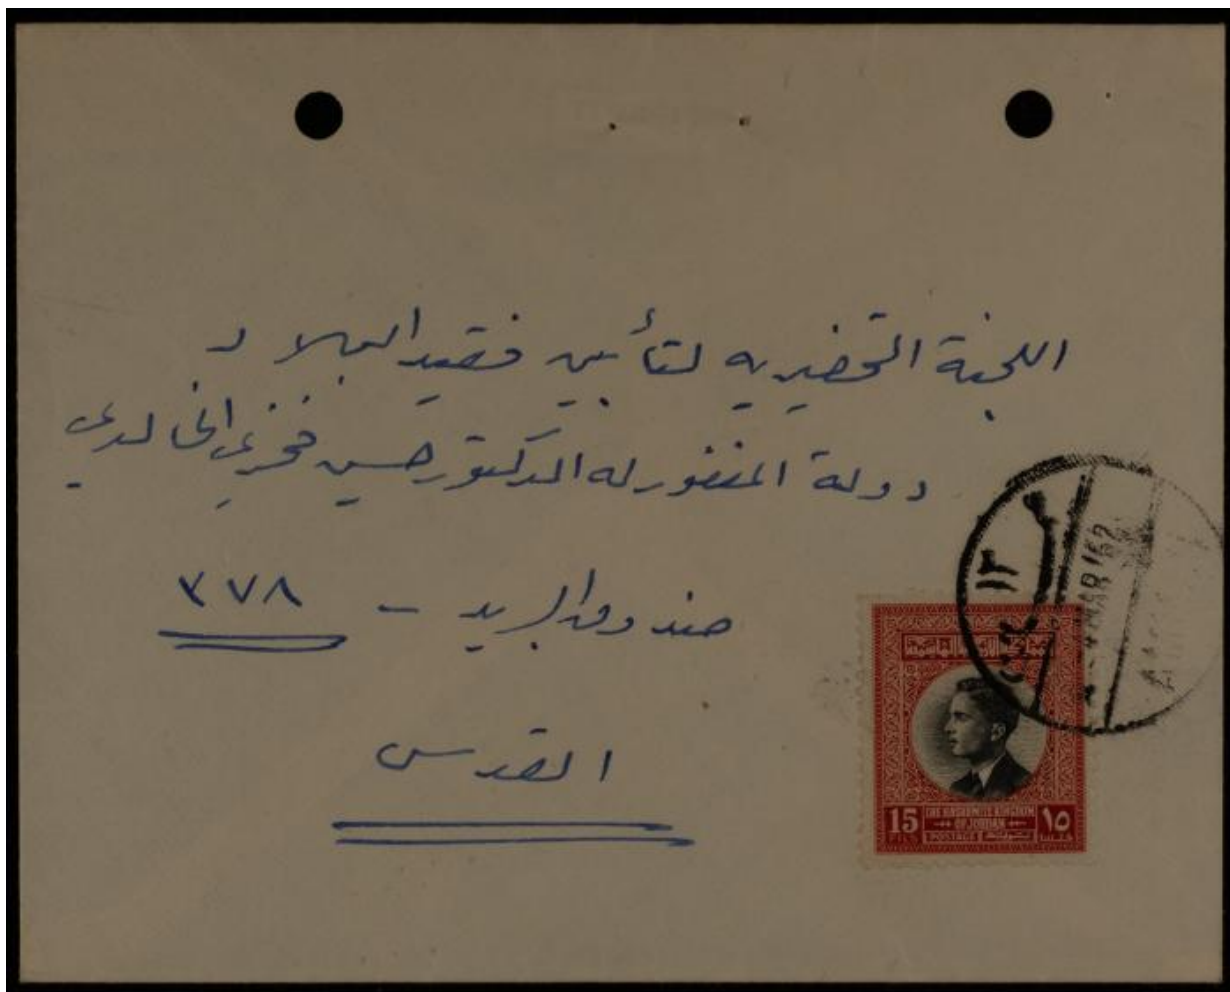 اللجنة التحضيرية لتأبين فقيد البلاد
دولة المغفور له الدكتور حسين فخري الخالدي
صندوق البريد - ٣٧٨
القدس
١٣
4 MAR 62
المملكة الأردنية الهاشمية
15 FILS
THE HASHEMITE KINGDOM
OF JORDAN
POSTAGE
١٥ فلسا